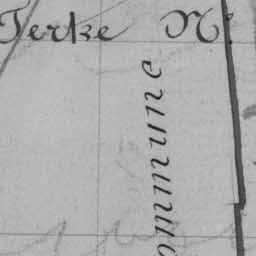 Terke N:
ommune